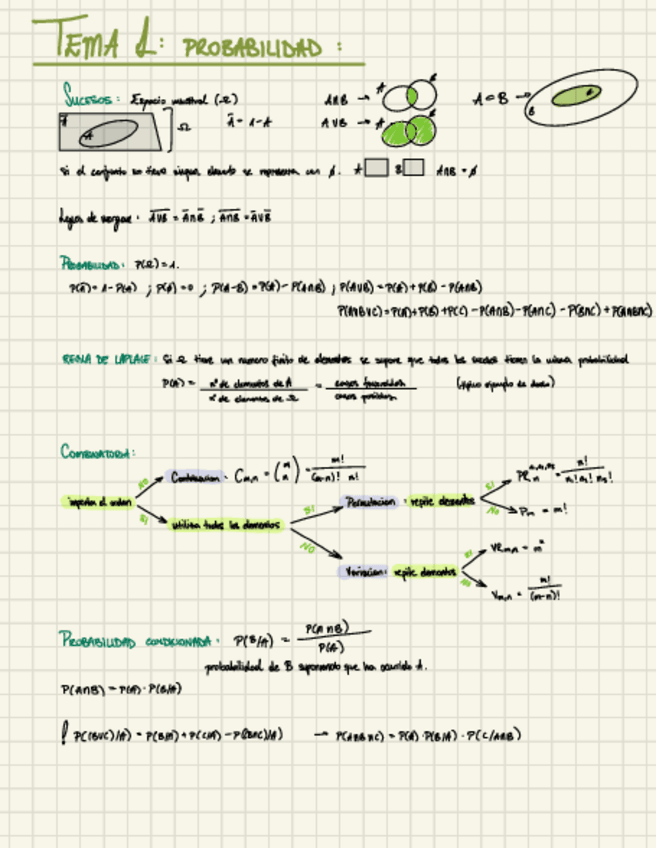 TEMA 1: PROBABILIDAD :
SUCESOS: Espacio muestral (Ω)
A∩B →
A⊂B →
Ā = 1-A
A∪B →
Ω
si el conjunto no tiene ningun elemento se representa con ∅. A B A∩B = ∅
Leyes de morgan: A̅∪̅B̅ = Ā∩B̅ ; A̅∩̅B̅ = Ā∪B̅
PROBABILIDAD: P(Ω)=1.
P(Ā)= 1-P(A) ; P(∅)=0 ; P(A-B)=P(A)-P(A∩B) ; P(A∪B)=P(A)+P(B)-P(A∩B)
P(A∪B∪C)=P(A)+P(B)+P(C)-P(A∩B)-P(A∩C)-P(B∩C)+P(A∩B∩C)
REGLA DE LAPLACE: Si Ω tiene un numero finito de elementos se supone que todos los sucesos tienen la misma probabilidad
P(A)= nº de elementos de A / nº de elementos de Ω = casos favorables / casos posibles (típico ejemplo de dado)
COMBINATORIA:
importa el orden
NO
Combinacion: Cm,n = (m n) = m! / (m-n)! n!
SI
utiliza todos los elementos
SI
Permutacion: repite elementos
SI
PRn = n! / n₁! n₂! n₃!
NO
Pm = m!
NO
Variacion: repite elementos
SI
VRm,n = mⁿ
NO
Vm,n = m! / (m-n)!
PROBABILIDAD CONDICIONADA: P(B/A) = P(A∩B) / P(A)
probabilidad de B suponiendo que ha ocurrido A.
P(A∩B) = P(A)·P(B/A)
! P((B∪C)/A) = P(B/A)+P(C/A)-P((B∩C)/A) → P(A∩B∩C) = P(A)·P(B/A)·P(C/A∩B)